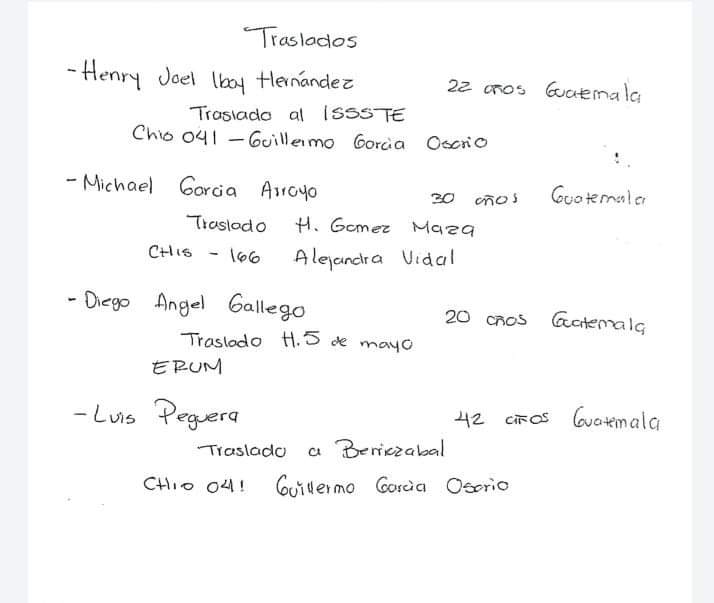 Traslados
- Henry Joel Iboy Hernández 22 años Guatemala
Traslado al ISSSTE
Chio 041 - Guillermo Garcia Osorio
- Michael Garcia Arroyo 30 años Guatemala
Traslado H. Gomez Maza
CHIS - 166 Alejandra Vidal
- Diego Angel Gallego 20 años Guatemala
Traslado H. 5 de mayo
ERUM
- Luis Peguera 42 años Guatemala
Traslado a Berriozabal
CHIO 041 Guillermo Garcia Osorio